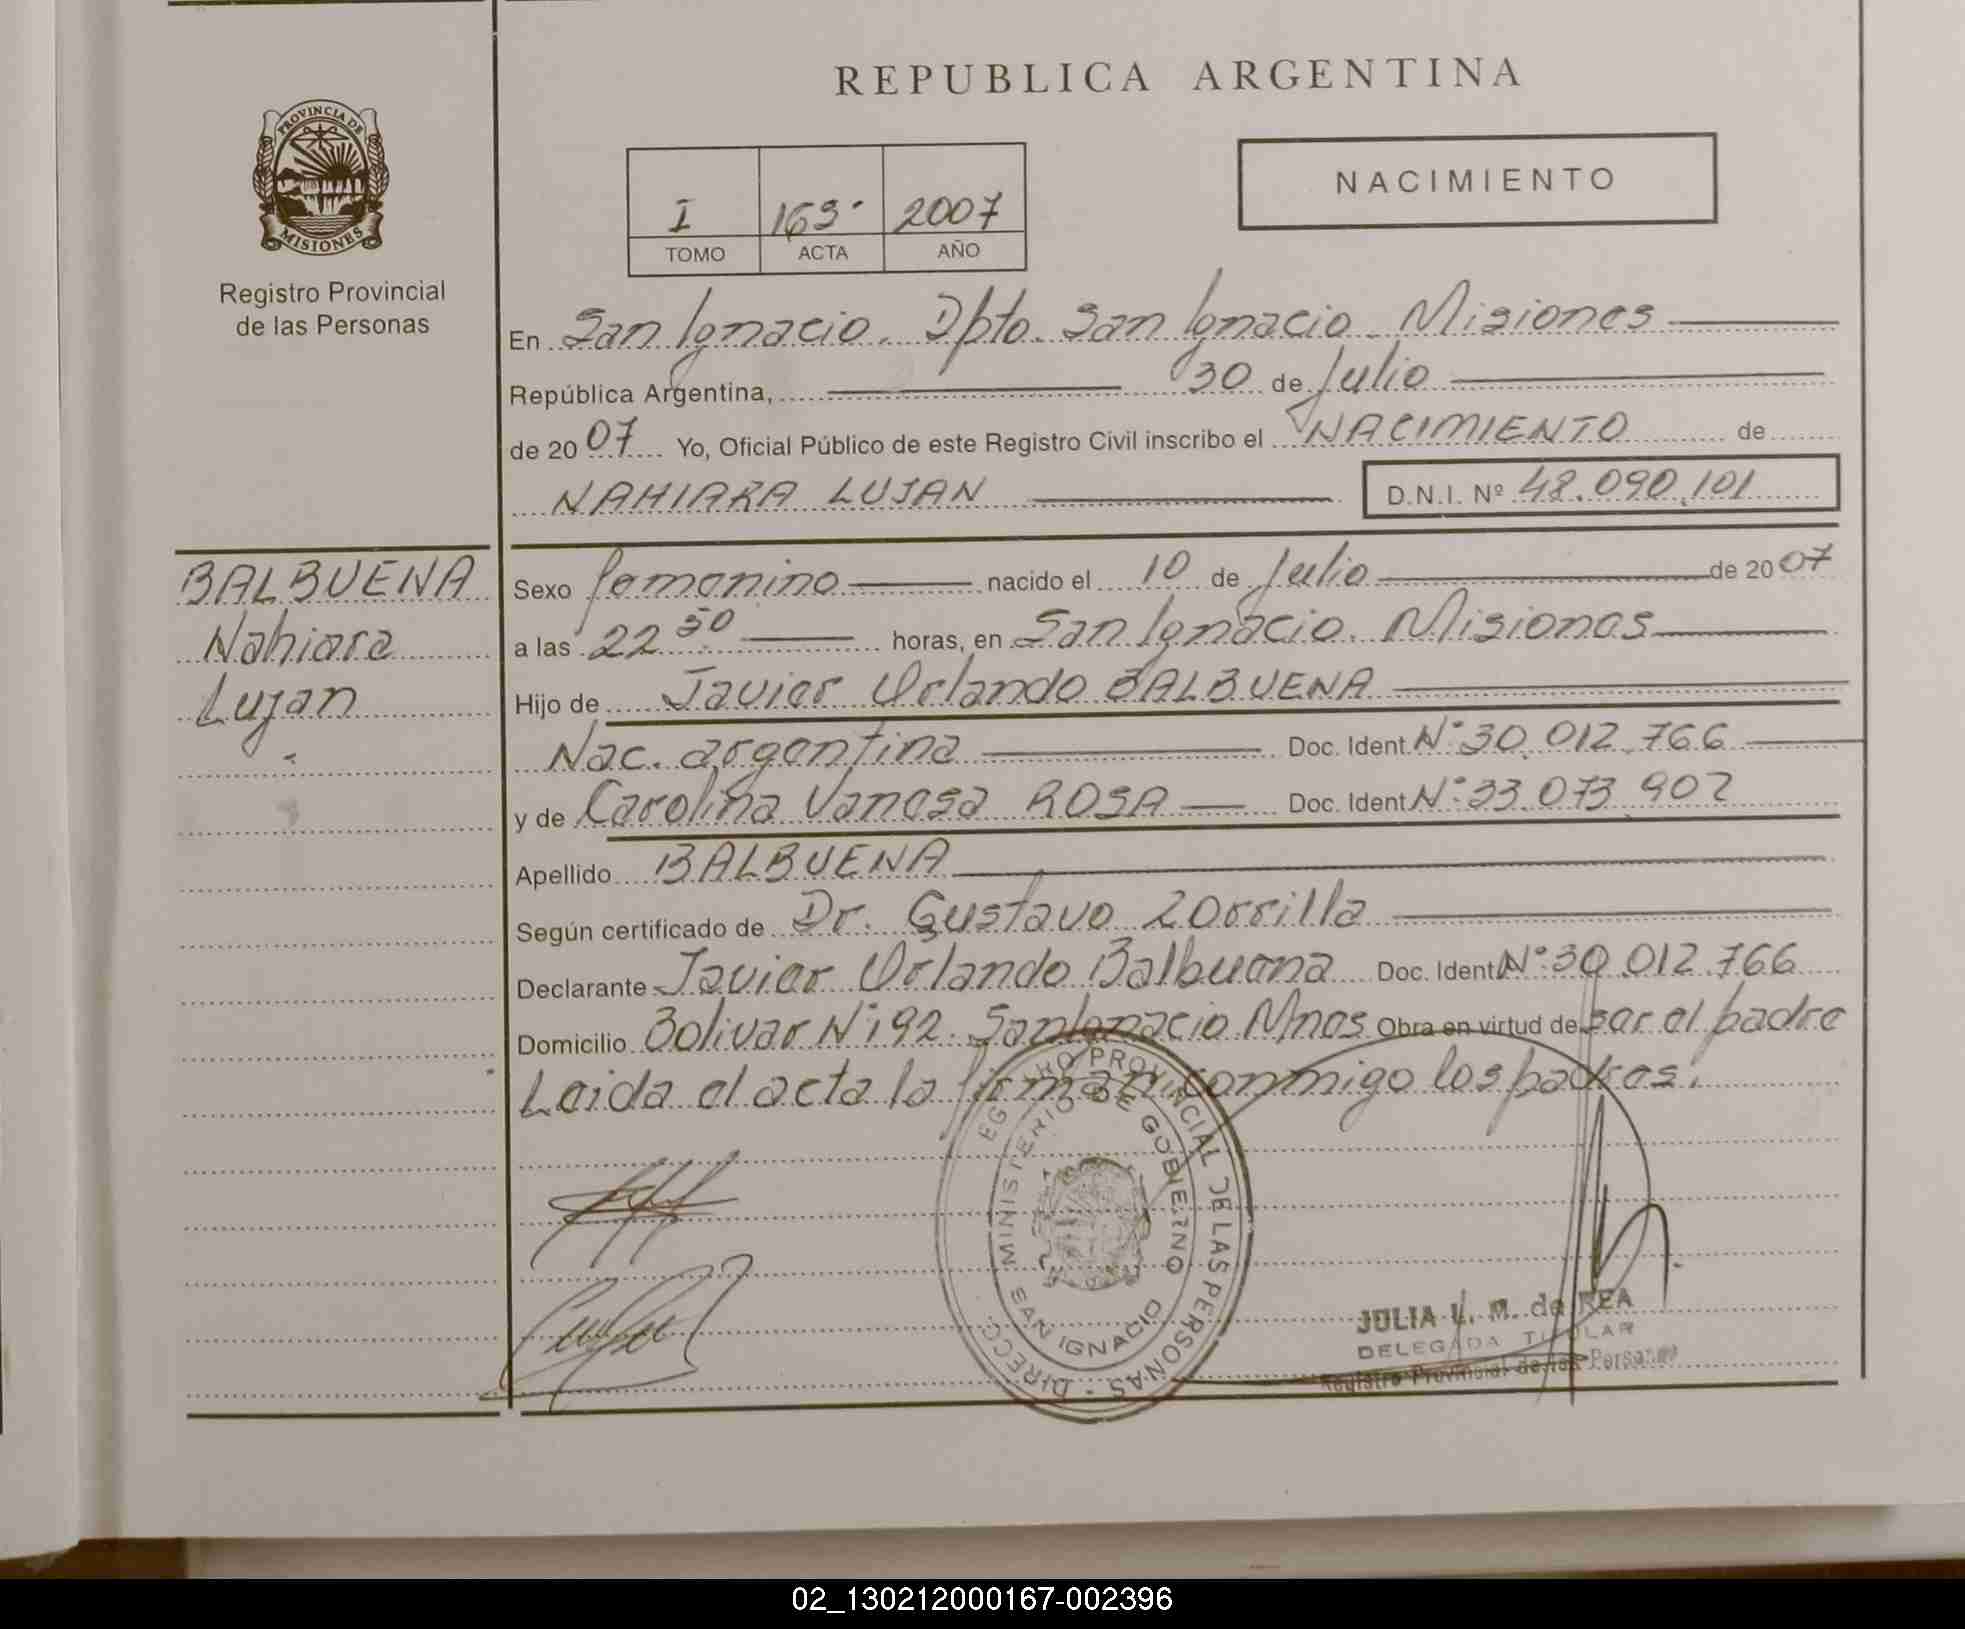 REPUBLICA ARGENTINA
PROVINCIA DE
MISIONES
Registro Provincial
de las Personas
NACIMIENTO
I 163 2007
TOMO ACTA AÑO
En San Ignacio. Dpto. San Ignacio Misiones
República Argentina, 30 de Julio
de 2007 Yo, Oficial Público de este Registro Civil inscribo el NACIMIENTO de
NAHIARA LUJAN D.N.I. Nº 48.090.101
BALBUENA
Nahiara
Lujan
Sexo femenino nacido el 10 de Julio de 2007
a las 22 30 horas, en San Ignacio. Misiones
Hijo de Javier Orlando BALBUENA
Nac. argentina Doc. Ident. Nº 30.012.766
y de Carolina Vanesa ROSA Doc. Ident. Nº 33.073.902
Apellido BALBUENA
Según certificado de Dr. Gustavo Zorrilla
Declarante Javier Orlando Balbuena Doc. Ident. Nº 30.012.766
Domicilio Bolivar Nº 192. San Ignacio Mnes Obra en virtud de ser el padre
Leida el acta la firman conmigo los padres.
DIRECC. REGISTRO PROVINCIAL DE LAS PERSONAS
MINISTERIO DE GOBIERNO
SAN IGNACIO
JULIA L. M. de REA
DELEGADA TITULAR
Registro Provincial de las Personas
02_130212000167-002396